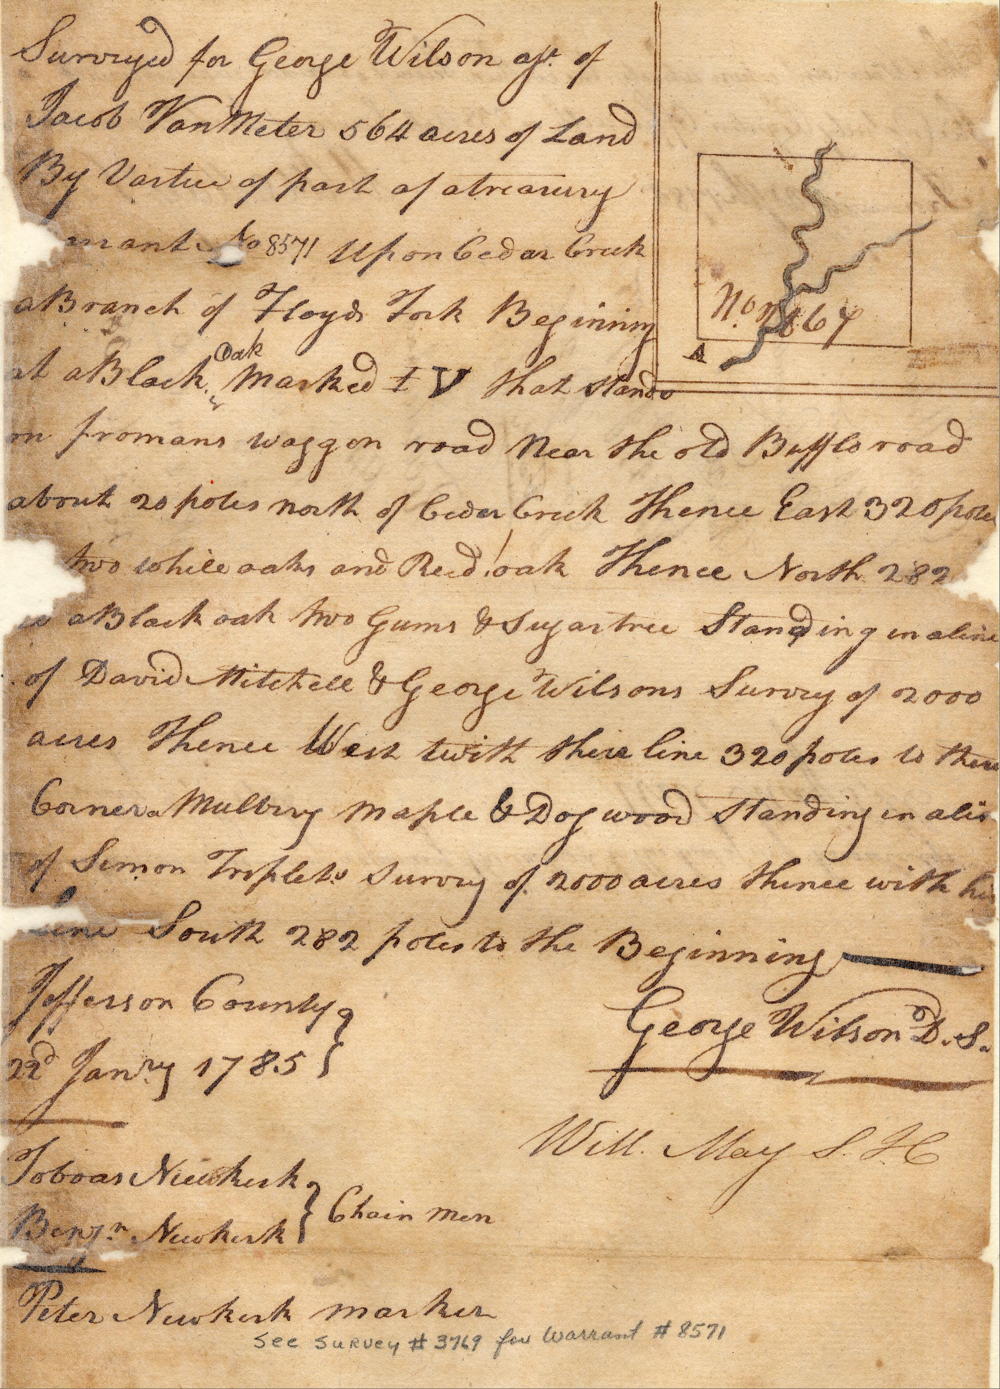 Surveyed for George Wilson asse. of
Jacob VanMeter 564 acres of Land
By Vartue of part of a treasury
No 8571 Upon Cedar Creek
a Branch of Floyds Fork Beginning
at a Black Oak Marked I V that stands
on fromans waggon road Near the old Bufflo road
about 20 poles north of Ceder Creek Thence East 320 poles
two white oaks and Reed oak Thence North 282
to a Black oak two Gums & Sugartree Standing in a line
of David Mitchell & George Wilsons Survey of 2000
acres Thence West with there line 320 poles to there
Corner a Mulbry Maple & Dogwood Standing in a line
of Simon Triplets Survey of 2000 acres thence with his
Line South 282 poles to the Beginning
Jefferson County
22d Janry 1785
George Wilson D. S.
Will. May S. J. C
Toboas Newkerk
Benjn Newkerk
Chain men
Peter Newkerk marker
See Survey # 3769 for Warrant # 8571
A